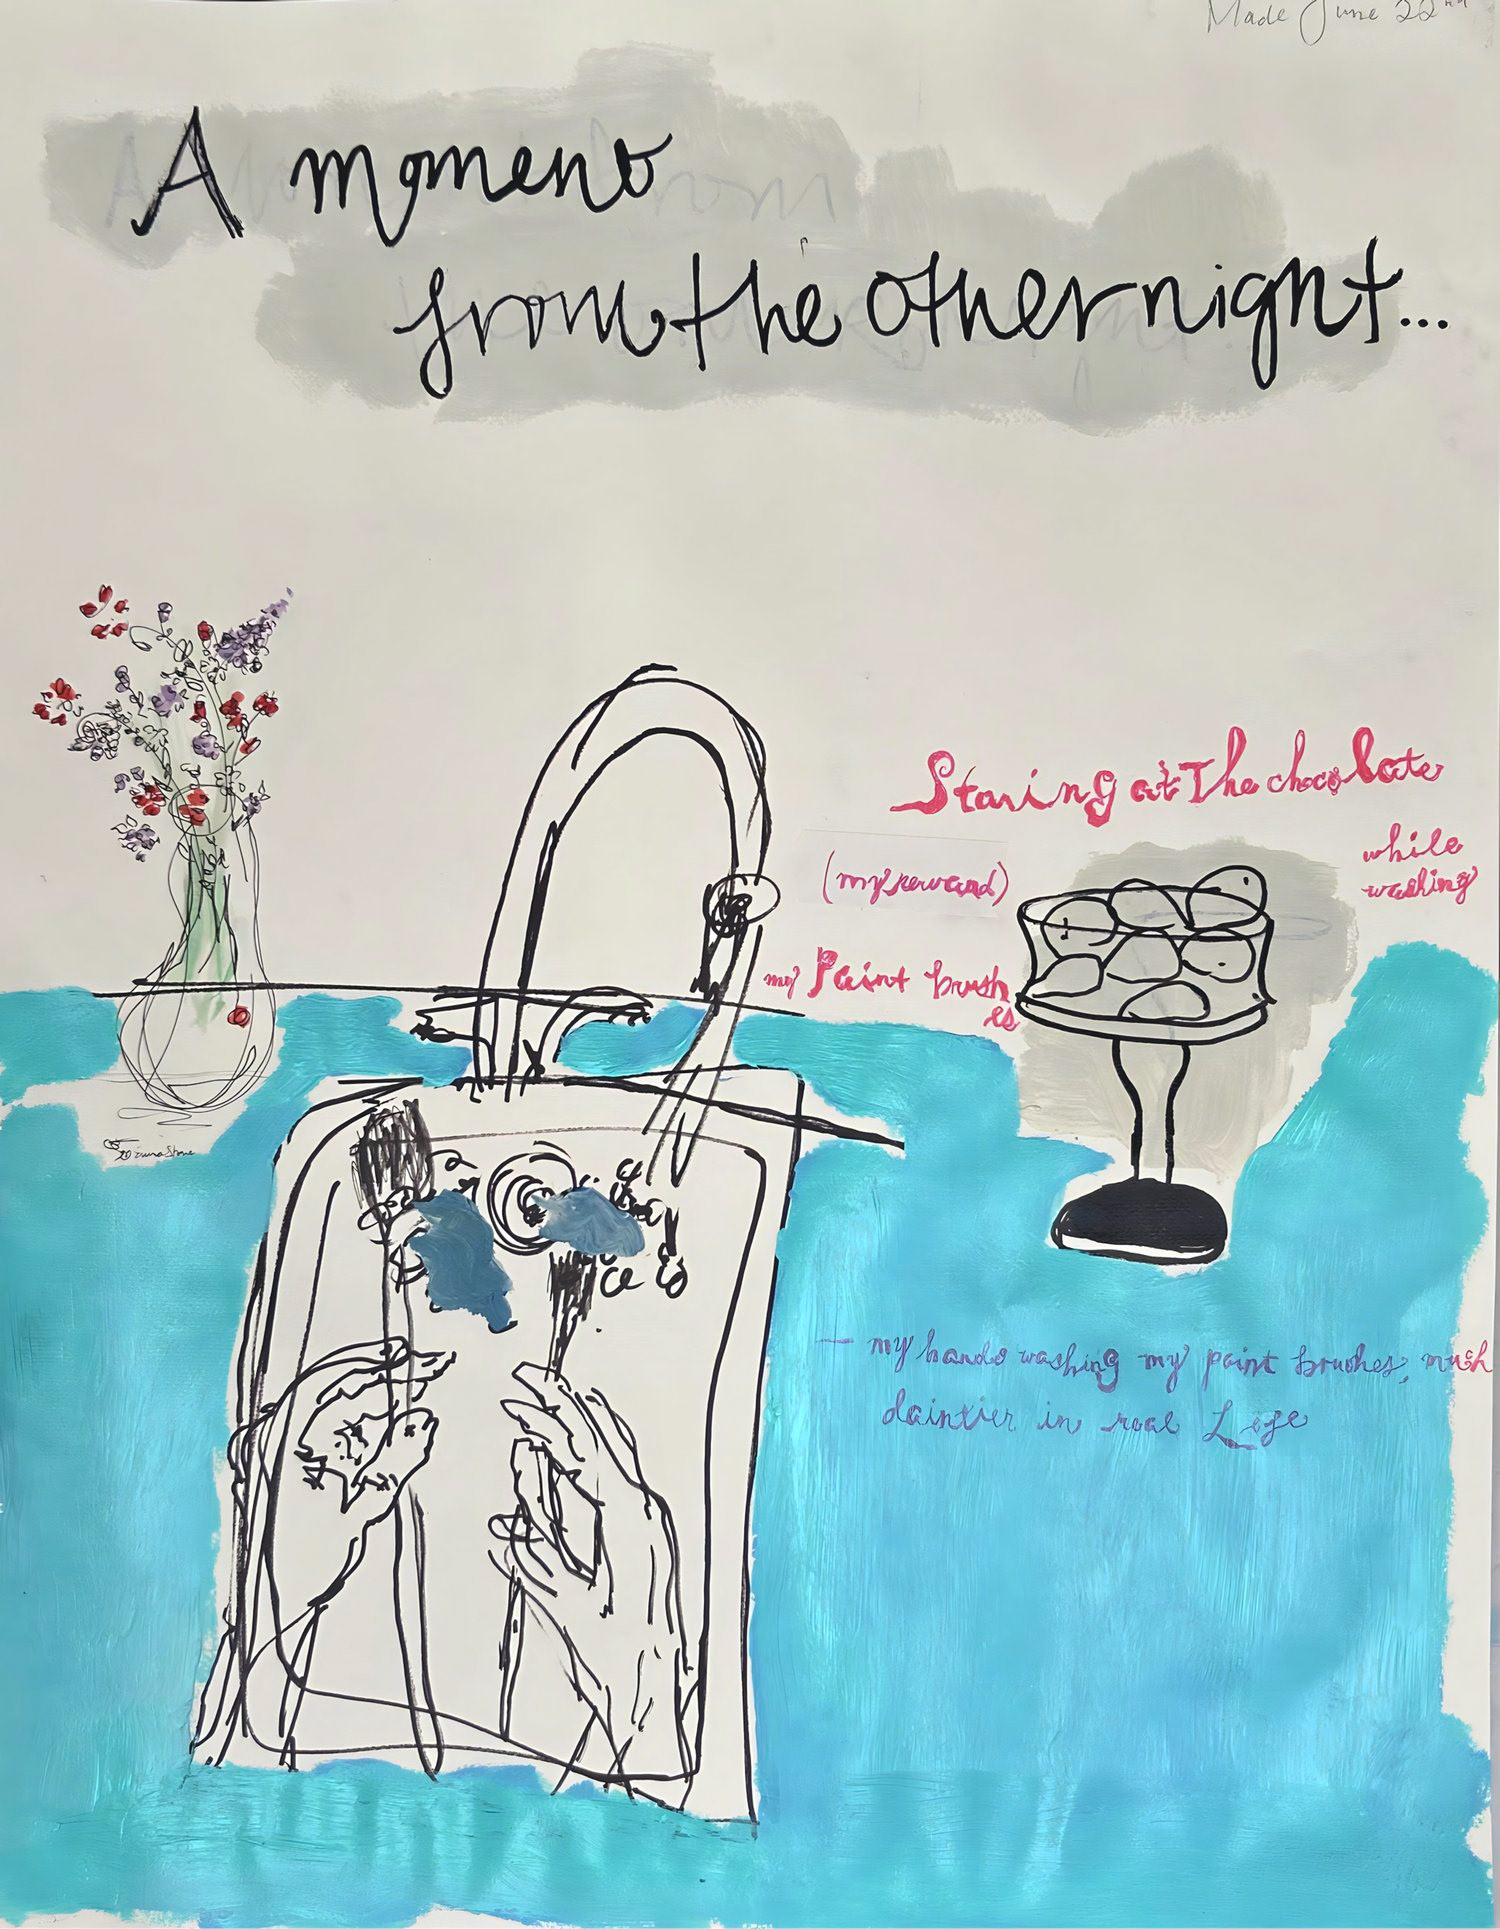 Made June 22nd
A moment
from the other night...
Staring at The chocolate
while
washing
(my reward)
my Paint brush
es
— my hands washing my paint brushes, much
daintier in real Life